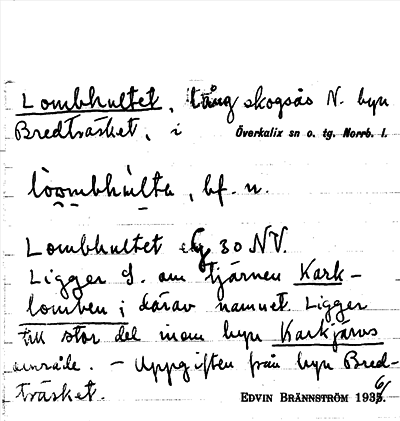 Lombhultet, lång skogsås N. byn
Bredträsket, i Överkalix sn o. tg. Norrb. l.
lòombhùlta, bf. n.
Lombhultet 30 NV.
Ligger S. om tjärnen Kark-
lomben; därav namnet. Ligger
till stor del inom byn Karkjärvs
område. – Uppgiften från byn Bred-
träsket. EDVIN BRÄNNSTRÖM 1936.